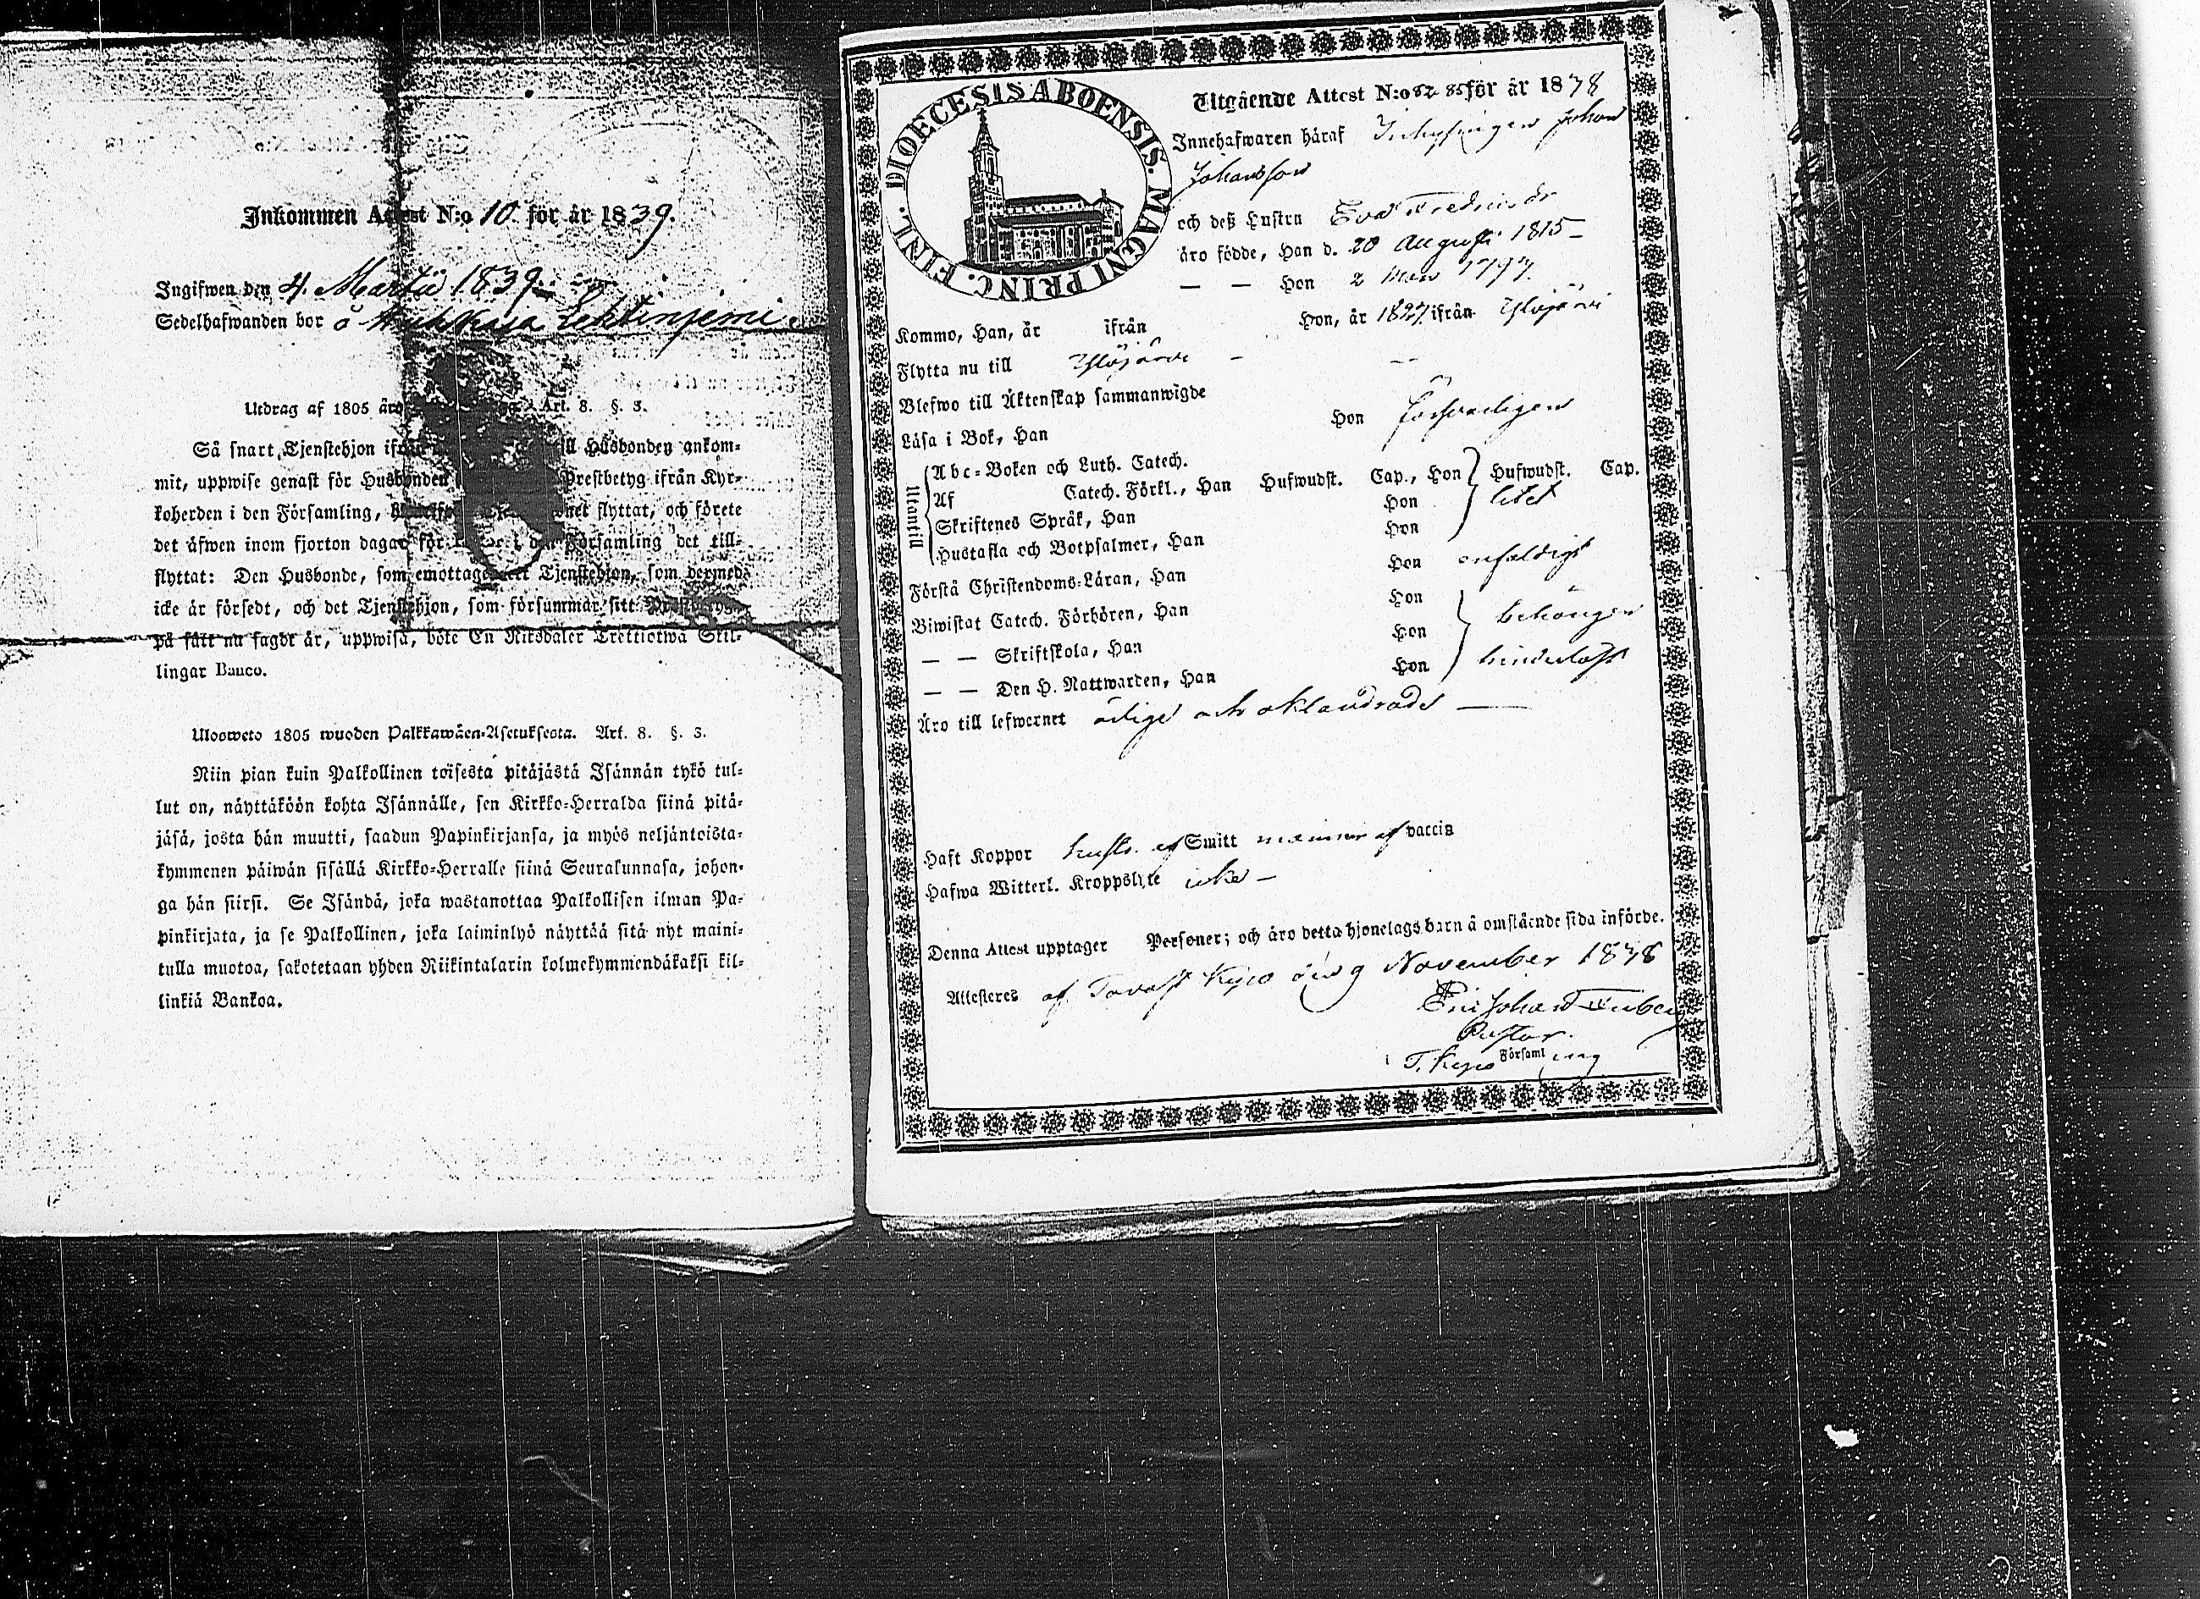 Inkommen Attest N:o 10. för år 1839.
Ingifwen den 4. Martii 1839.
Sedelhafwanden bor å
Utdrag af 1805 åro Art. 8. §. 3.
Så snart Tjenstehjon ifrån till Husbonden ankom-
mit, uppwise genast för Husbonden Prestbetyg ifrån Kyr-
koherden i den Församling, flyttat, och förete
det äfwen inom fjorton dagar för i den Församling det till-
flyttat: Den Husbonde, som emottager ett Tjenstehjon, som dermed
icke är försedt, och det Tjenstehjon, som försummar sitt
på sätt nu sagdt är, uppwisa, böte En Riksdaler Trettiotwå Skil-
lingar Banco.
Ulosweto 1805 wuoden Palkkawäen-Asetuksesta. Art. 8. §. 3.
Niin pian kuin Palkollinen toisesta pitäjästä Isännän tykö tul-
lut on, näyttäköön kohta Isännälle, sen Kirkko-Herralda siinä pitä-
jäsä, josta hän muutti, saadun Papinkirjansa, ja myös neljäntoista-
kymmenen päiwän sisällä Kirkko-Herralle siinä Seurakunnasa, johon-
ga hän siirsi. Se Isändä, joka wastanottaa Palkollisen ilman Pa-
pinkirjata, ja se Palkollinen, joka laiminlyö näyttää sitä nyt maini-
tulla muotoa, sakotetaan yhden Riikintalarin kolmekymmendäkaksi kil-
linkiä Bankoa.
DIOECESIS ABOENSIS. MAGNI PRINC. FINL.
Utgående Attest N:o 82-85 för år 1838
Innehafwaren häraf Johan
Johansson
och deß Hustru Eva Fredricsdr
äro födde, Han d. 20 Augusti 1815 –
— — Hon 2 1797.
Kommo, Han, år ifrån Hon, år 1827 ifrån Ylöjärvi
Flytta nu till Ylöjärvi – –
Blefwo till Äktenskap sammanwigde
Läsa i Bok, Han Hon försvarligen
Utantill
Abc-Boken och Luth. Catech.
Af Catech. Förkl., Han Hufwudst. Cap., Hon Hufwudst. Cap.
Skriftenes Språk, Han Hon litet
Hustafla och Botpsalmer, Han Hon
Förstå Christendoms-Läran, Han Hon enfaldigt
Biwistat Catech. Förhören, Han Hon
— — Skriftskola, Han Hon behörigen
— — Den H. Nattwarden, Han Hon hinderlöst
Äro till lefwernet ärlige och oklandrade —
Haft Koppor hustr. af Smitt mannen af vaccin
Hafwa Witterl. Kroppslyte icke –
Denna Attest upptager Personer; och äro detta hjonelags barn å omstående sida införde.
Attesteres af Tavast Kyro den 9 November 1838
Eric Johan
Pastor.
T. Kyro Församling